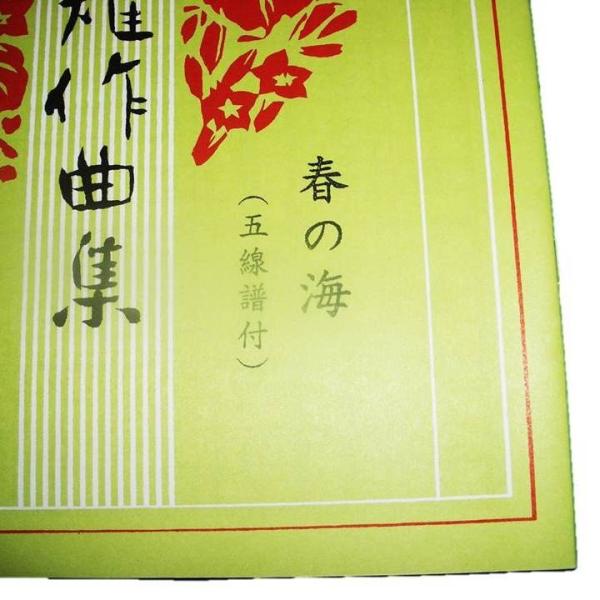 春の海
(五線譜付)
雄作曲集